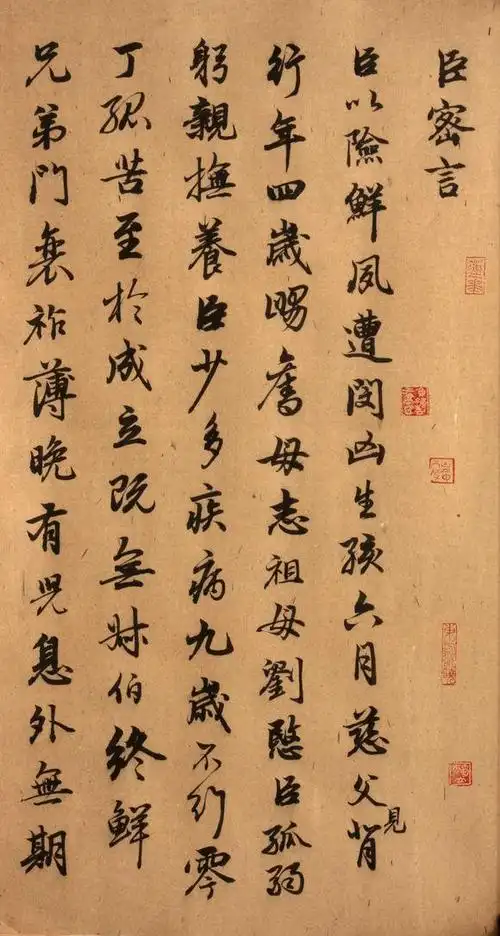 臣密言
臣以險釁夙遭閔凶生孩六月慈父見背
行年四歲舅奮母志祖母劉愍臣孤弱
躬親撫養臣少多疾病九歲不行零
丁孤苦至於成立既無叔伯終鮮
兄弟門衰祚薄晚有兒息外無期